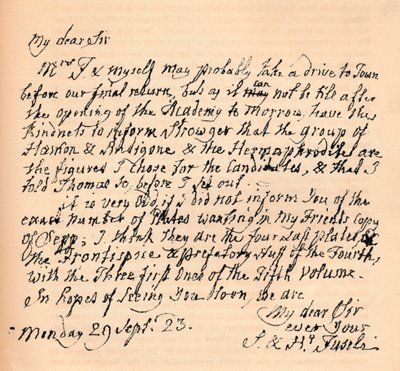 My dear Sir
Mrs F & myself may probably take a drive to Town
before our final return, but as it can may not be till after
the opening of the Academy to Morrow, have the
kindness to inform Strowger that the group of
Hæmon & Antigone & the Hermaphrodite are
the figures I chose for the Candidates, & that I
told Thomas so, before I set out.
it is very Odd, if I did not inform You of the
exact number of Plates wanting in My Friends Copy
of Sepp; I think they are the four last plates of
the Frontispice & prefatory Stuff of the Fourth,
with the Three first Ones of the Fifth Volume
In hopes of Seeing You Soon, we are
My dear Sir
ever Yours
Monday 29 Sept. 23.
& Hy Fuseli